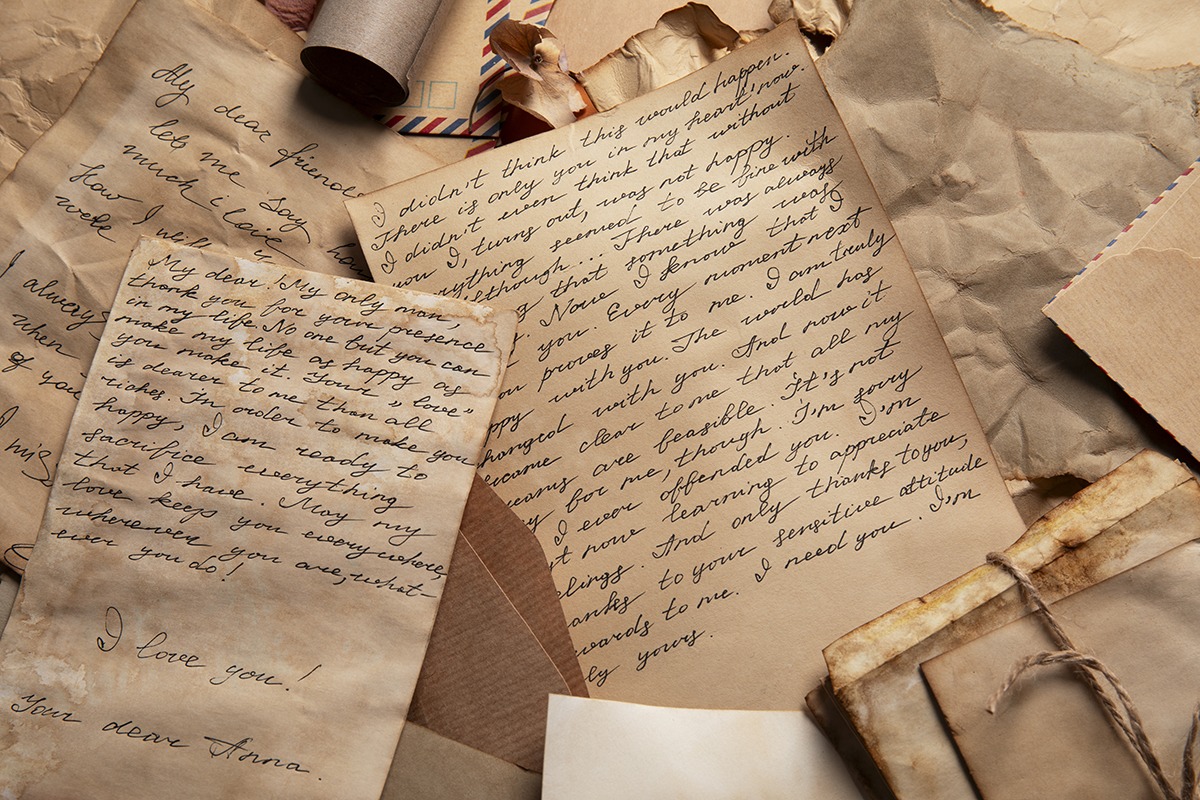 My dear friend
let me say
much i love
how I will
well
I always
when
of you
I mis
My dear! My only man,
thank you for your presence
in my life. No one but you can
make my life as happy as
you make it. Your "love"
is dearer to me than all
riches. In order to make you
happy, I am ready to
sacrifice everything
that I have. May my
love keeps you everywhere,
wherever you are, what-
ever you do!
I love you!
Your dear Anna.
I didn't think this would happen.
There is only you in my heart now.
I didn't even think that without
you I, turns out, was not happy.
erything seemed to be fine with
lthough... There was always
g that something was
Now I know that I
you. Every moment next
ou proves it to me. I am truly
ppy with you. The world has
hanged with you. And now it
ecame clear to me that all my
reams are feasible. It's not
y for me, though. I'm sorry
I ever offended you. I'm
t now learning to appreciate
elings. And only thanks to you,
anks to your sensitive attitude
wards to me. I need you. I'm
ly yours.